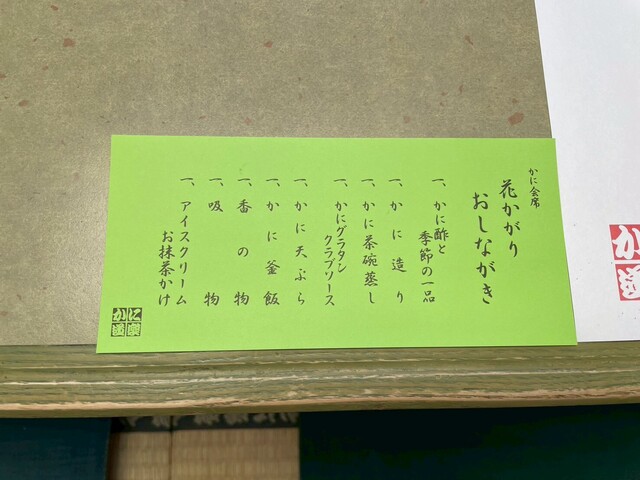 かに会席
花かがり
おしながき
一、かに酢と
季節の一品
一、かに造り
一、かに茶碗蒸し
一、かにグラタン
クラブソース
一、かに天ぷら
一、かに釜飯
一、香の物
一、吸物
一、アイスクリーム
お抹茶かけ
かに道楽
か
道